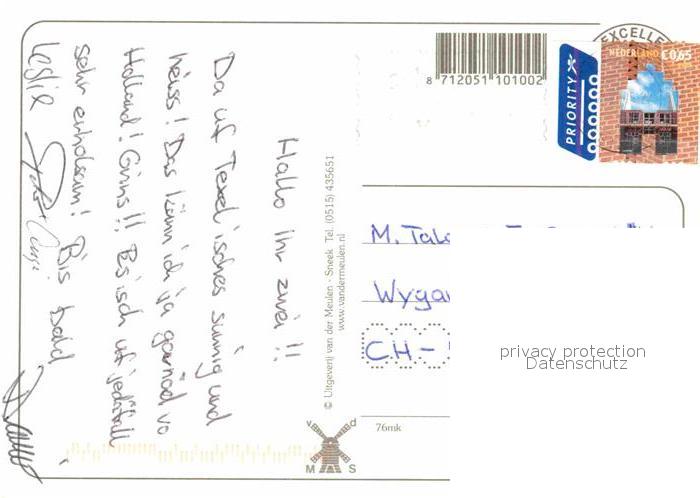 Hallo ihr zwei!!
Da uf Texel isches sunnig und
heiss! Das känn ich ja garnöd vo
Holland! Grins!! Es isch uf jedefall
sehr erholsam! Bis bald
Leslie
© Uitgeverij van der Meulen - Sneek Tel. (0515) 435651
www.vandermeulen.nl
8 712051 101002
PRIORITY
EXCELLE
NEDERLAND €0,65
M.
CH-
privacy protection
Datenschutz
76mk
v d
M S